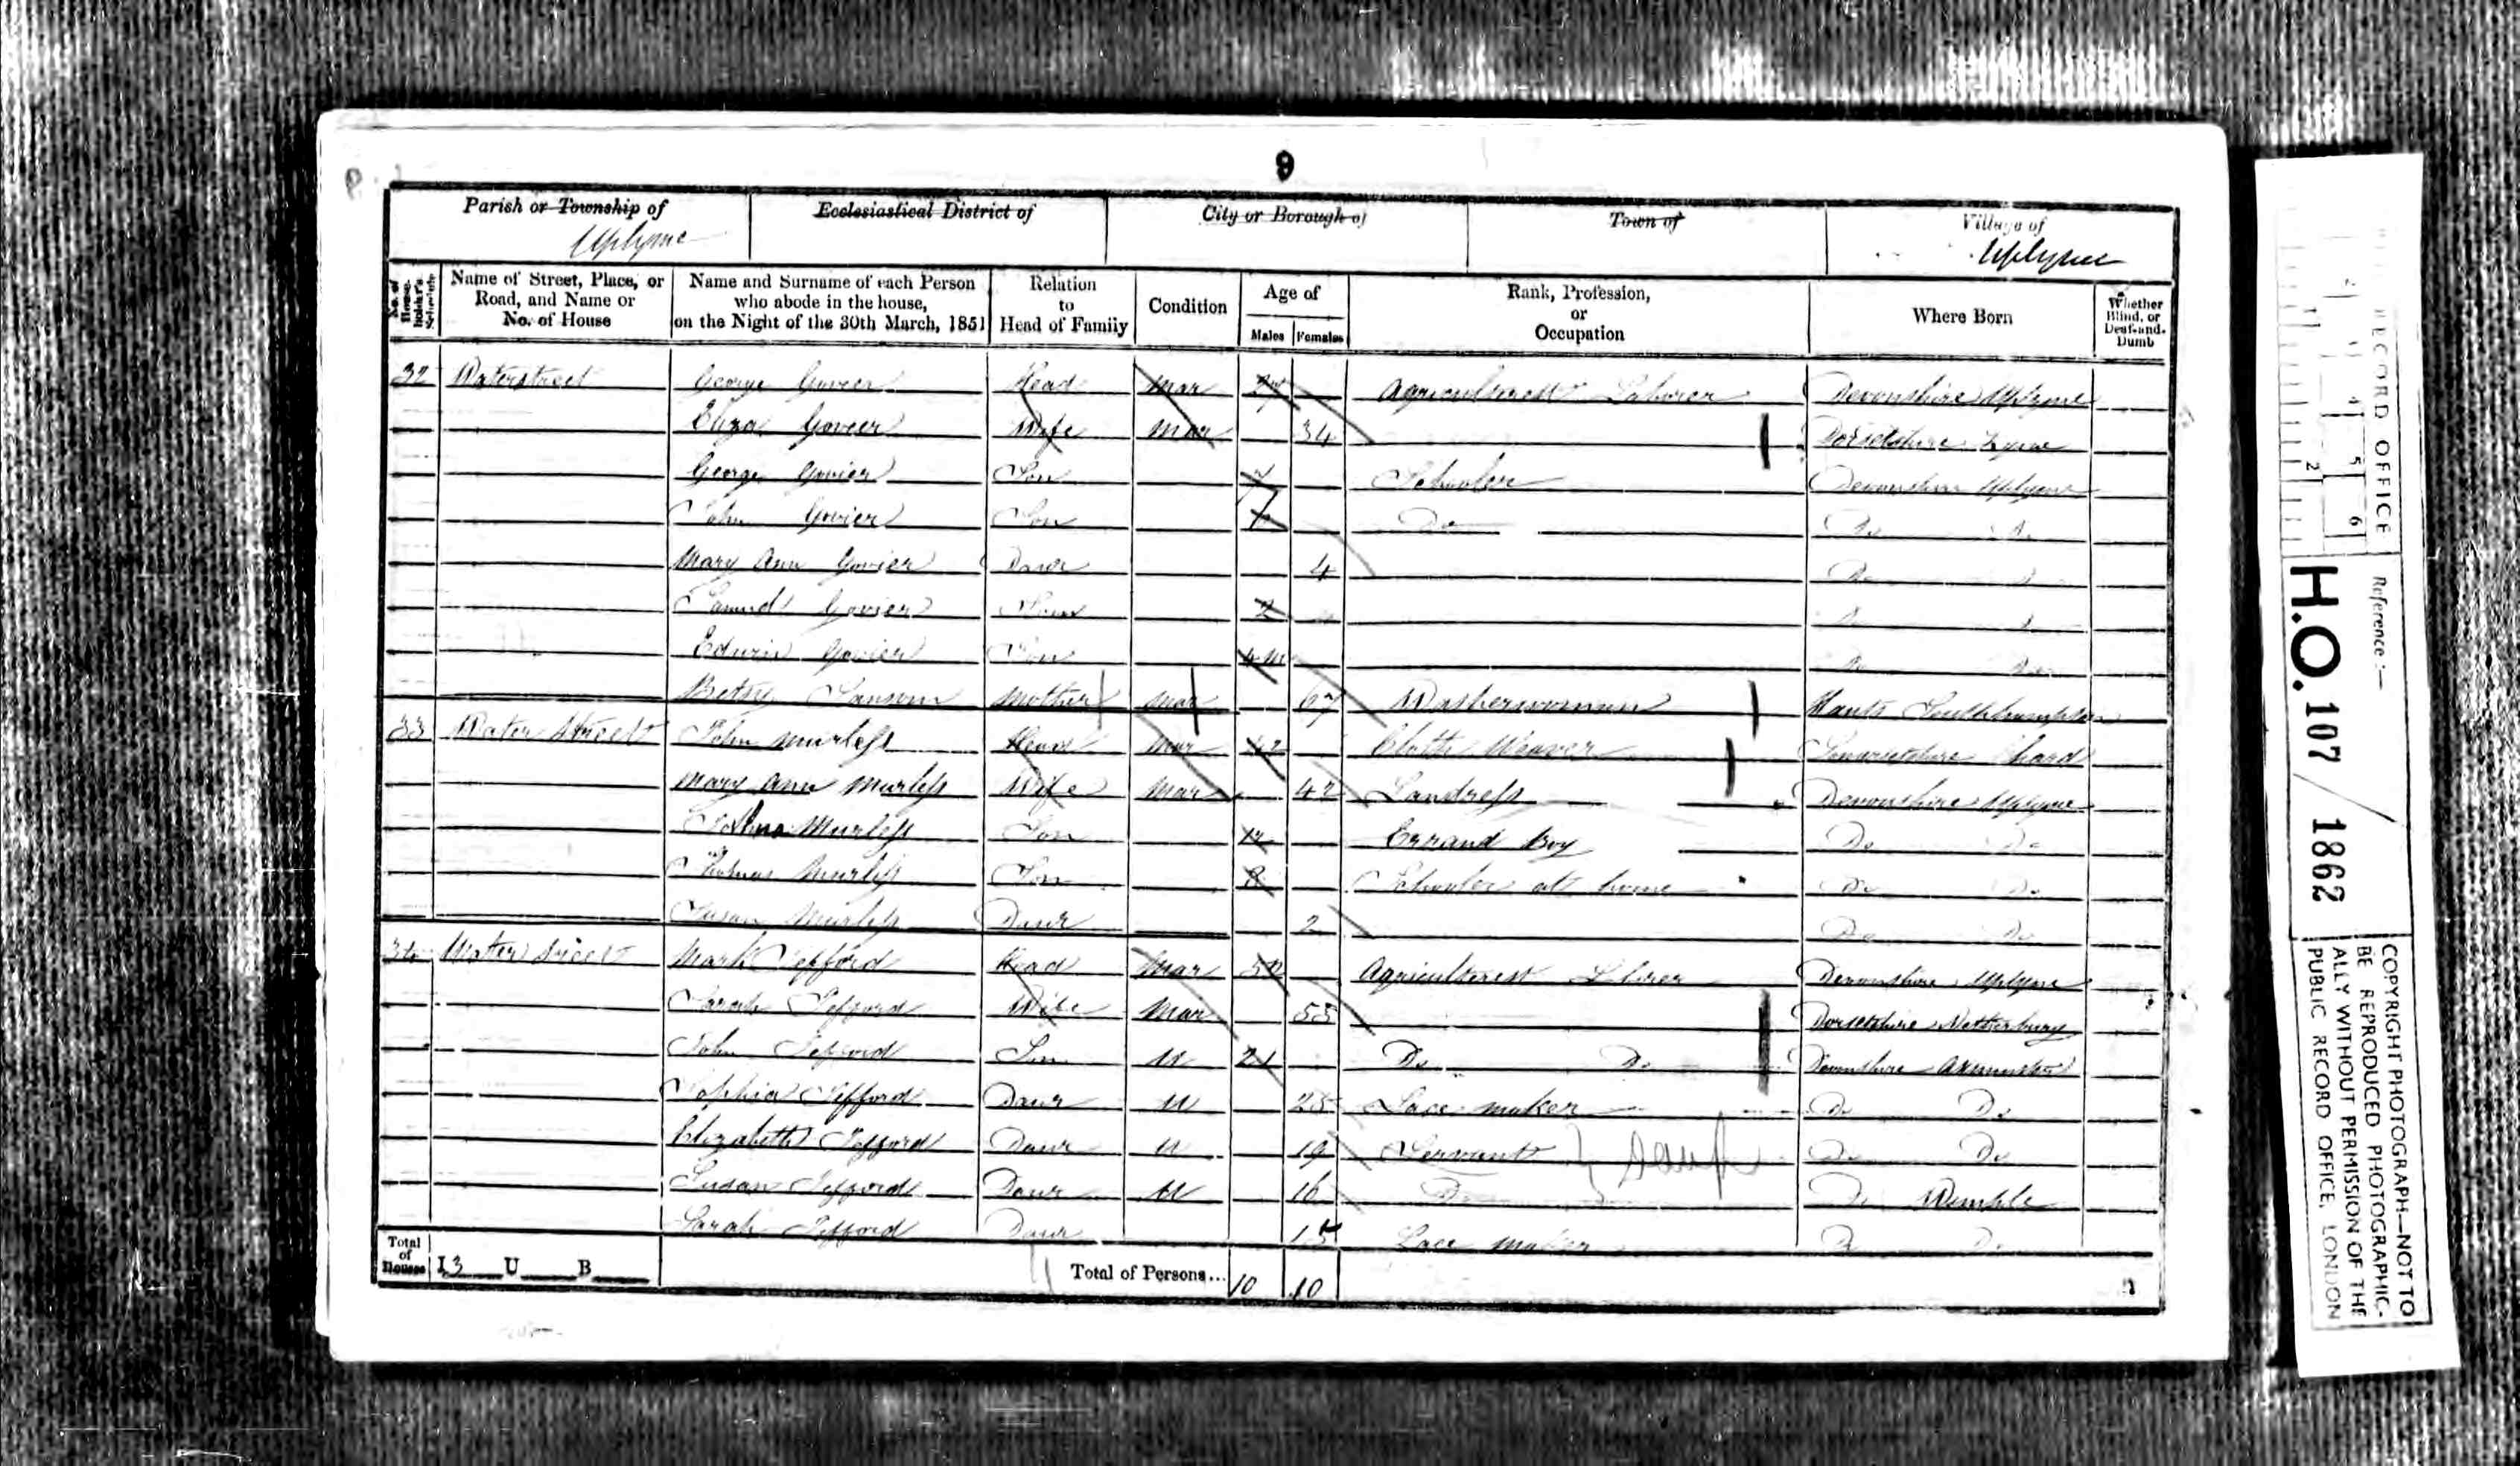 9
Parish or Township of Ecclesiastical District of City or Borough of Town of Village of
Uplyme Uplyme
No. of House-holder's Schedule Name of Street, Place, or Road, and Name or No. of House Name and Surname of each Person who abode in the house, on the Night of the 30th March, 1851 Relation to Head of Family Condition Age of Males Females Rank, Profession, or Occupation Where Born Whether Blind, or Deaf-and-Dumb
32 Waterstreet George Govier Head Mar Agricultural Laborer Devonshire Uplyme
Eliza Govier Wife Mar 34 Dorsetshire Lyme
George Govier Son Scholar Devonshire Uplyme
John Govier Son Do Do Do
Mary Ann Govier Daur 4 Do Do
Samuel Govier Son 2 Do Do
Edwin Govier Son 4m Do Do
Betsy Sansom Mother Mar 67 Washerwoman Hants Southampton
33 Water Street John Murless Head Mar 42 Cloth Weaver Somersetshire Chard
Mary Ann Murless Wife Mar 42 Landress Devonshire Uplyme
Murless Son 12 Errand Boy Do Do
Thomas Murless Son 8 Scholar at home Do Do
Susan Murless Daur 2 Do Do
34 Water Street Mark Jefford Head Mar Agricultural Laborer Devonshire Uplyme
Sarah Jefford Wife Mar 55 Dorsetshire Netherbury
John Jefford Son U 21 Do Do Devonshire Axminster
Sophia Jefford Daur U 25 Lace maker Do Do
Elizabeth Jefford Daur U 19 Servant Do Do
Susan Jefford Daur U 16 Do Do
Sarah Jefford Daur 15 Lace maker Do Do
Total of Houses I 3 U B Total of Persons... 10 10
RECORD OFFICE
Reference:—
H.O. 107 / 1862
COPYRIGHT PHOTOGRAPH—NOT TO
BE REPRODUCED PHOTOGRAPHIC-
ALLY WITHOUT PERMISSION OF THE
PUBLIC RECORD OFFICE, LONDON